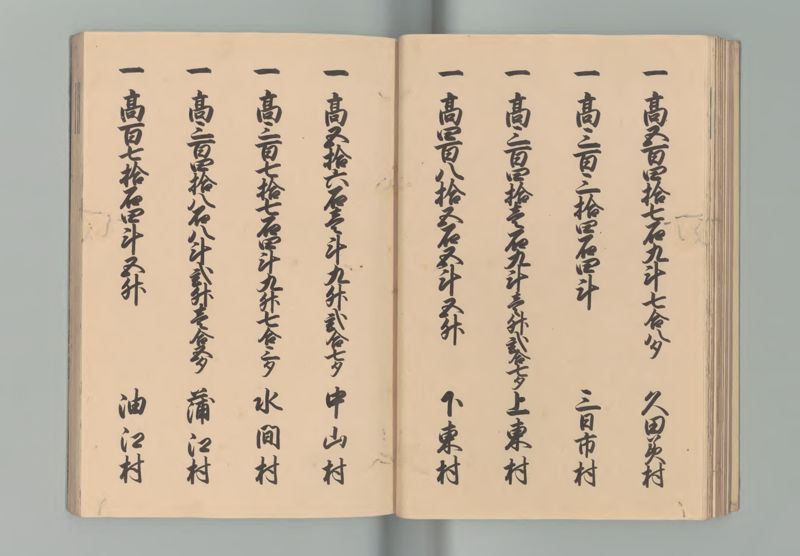 一 高五百四拾七石九斗七合八夕 久田美村
一 高三百三拾四石四斗 三日市村
一 高三百四拾壱石九斗壱升弐合七夕 上東村
一 高四百八拾五石五斗五升 下東村
一 高五拾六石壱斗九升弐合七夕 中山村
一 高三百七拾七石四斗九升七合三夕 水間村
一 高三百四拾八石八斗弐升壱合五夕 蒲江村
一 高百七拾石四斗五升 油江村